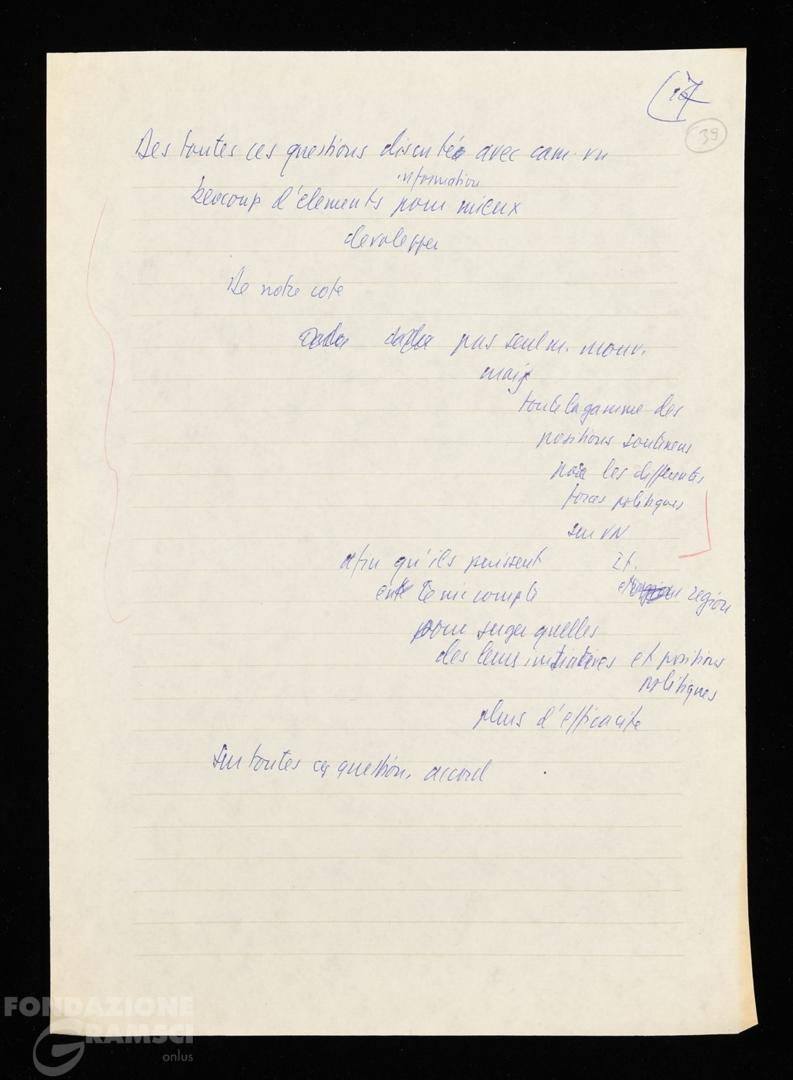 17
39
Des toutes ces questions discutés avec cam. vn
information
beocoup d'elements pour mieux
developper
De notre cote
pas seulm. mouv.
mais
toute la gamme des
positions soutenues
par les differentes
forces politiques
sur VN
afin qu'ils puissent It.
tenir compte region
pour juger quelles
des leurs initiatives et positions
politiques
plus d'efficacite
Sur toutes ces question. accord
FONDAZIONE
GRAMSCI
onlus